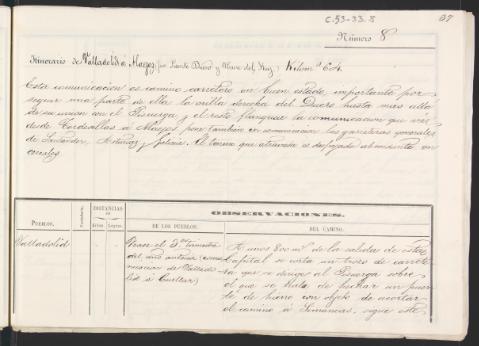 C-53-33-8
87
Número 8
Itinerario de Valladolid á Mayorga por Puente Duero y Nava del Rey; Kilom.s 64.
Esta comunicacion es camino carretero en buen estado, importante por
seguir una parte de ella la orilla derecha del Duero hasta mas allá
de su union con el Pisuerga y el resto flanquea la comunicacion que
desde Tordesillas á poner tambien en comunicacion las carreteras generales
de Santander, Asturias y Galicia. El terreno que atraviesa es despejado abundante en
cereales
PUEBLOS.
DISTANCIAS
OBSERVACIONES.
DE LOS PUEBLOS.
DEL CAMINO.
Valladolid
Vease el 3.er trimestre
del año anterior (comu-
nicacion de Vallado-
lid á Cuellar)
A unos 800 m.s de la salida de esta
Capital se corta un trozo de carrete-
ra que se dirige al Pisuerga sobre
el que se trata de echar un puen-
te de hierro con objeto de acortar
el camino á Simancas, sigue este